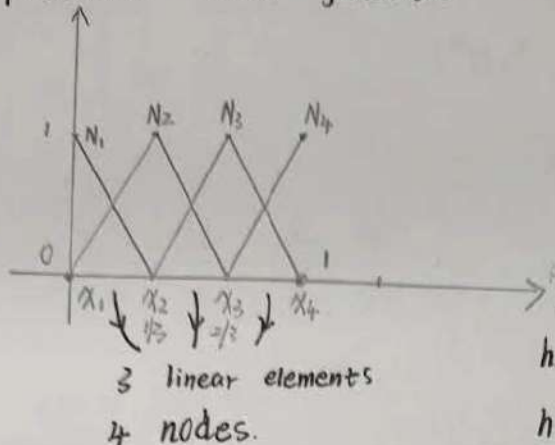 1 N₁ N₂ N₃ N₄
0 1
x₁ x₂ x₃ x₄
1/3 2/3
3 linear elements
h
4 nodes.
h